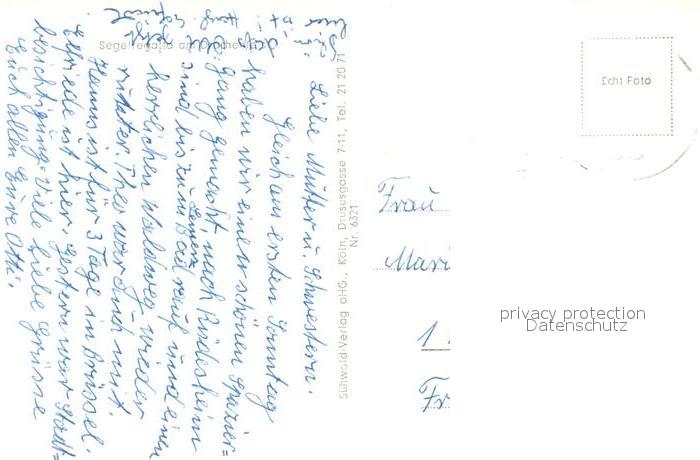 Segelregatta am
Liebe Mutter u. Schwestern.
Gleich am ersten Sonntag
haben wir einen schönen Spazier=
gang gemacht, nach Rüdesheim
sind bis zum rauf und einen
herrlichen Waldweg wieder
runter. Theo war auch mit.
Hanns ist für 3 Tage in Brüssel.
Elfriede ist hier. Gestern war Stadt=
besichtigung. Viele liebe Grüsse
Euch allen Eure Otti.
Sühwold-Verlag oHG., Köln, Drususgasse 7-11, Tel. 21 20 71
Nr. 6321
Echt Foto
Frau
Mari
1
Fr
privacy protection
Datenschutz